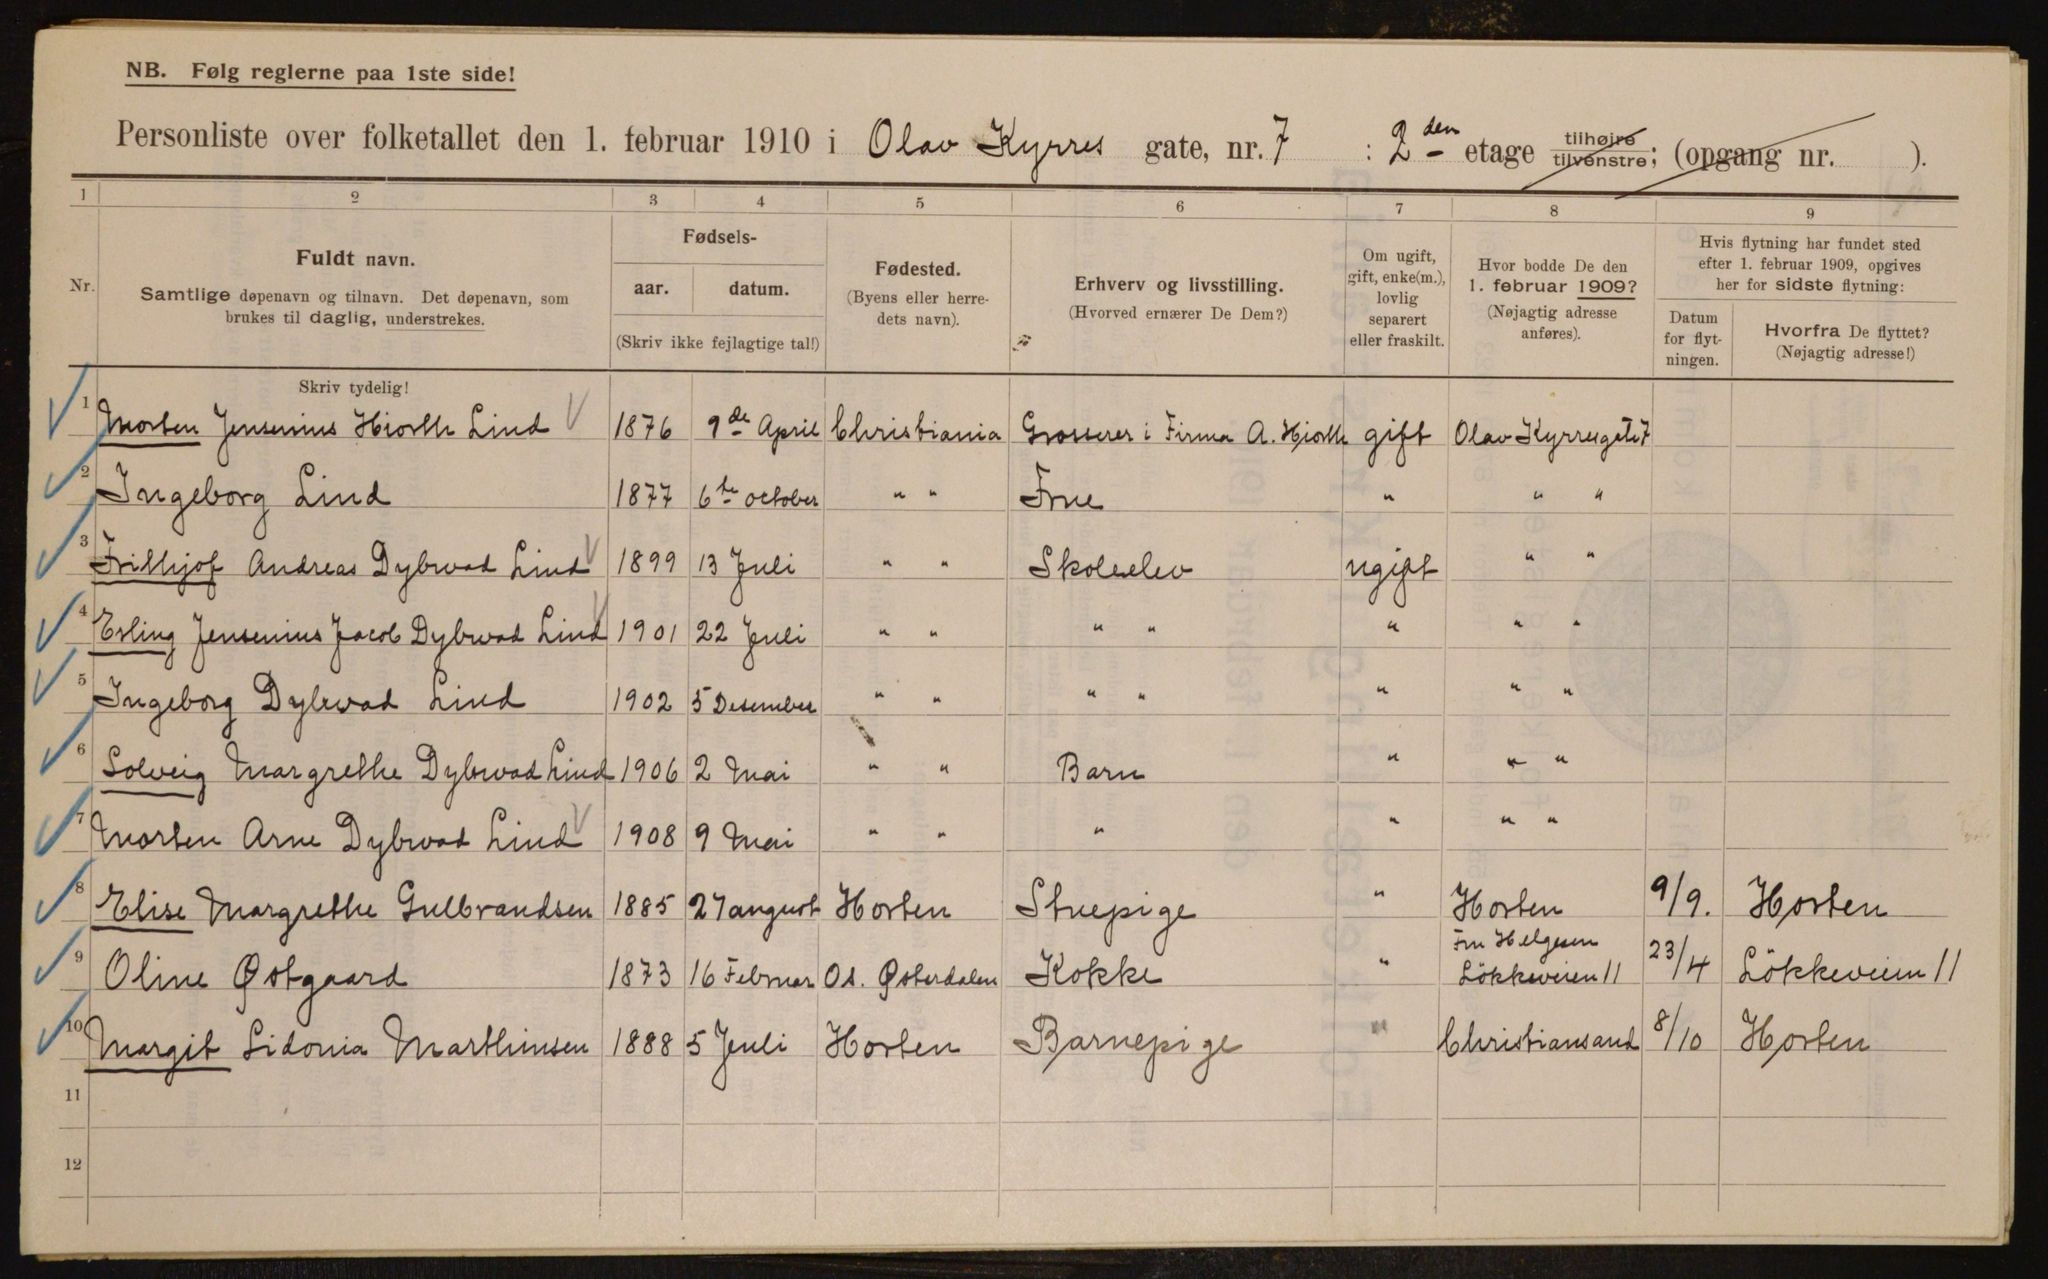 NB. Følg reglerne paa 1ste side!
Personliste over folketallet den 1. februar 1910 i Olav Kyrres gate, nr. 7 : 2den etage tilhøire tilvenstre; (opgang nr. ).
1 2 3 4 5 6 7 8 9
Nr.
Fuldt navn.
Samtlige døpenavn og tilnavn. Det døpenavn, som
brukes til daglig, understrekes.
Fødsels-
aar. datum.
(Skriv ikke fejlagtige tal!)
Fødested.
(Byens eller herre-
dets navn).
Erhverv og livsstilling.
(Hvorved ernærer De Dem?)
Om ugift,
gift, enke(m.),
lovlig
separert
eller fraskilt.
Hvor bodde De den
1. februar 1909?
(Nøjagtig adresse
anføres).
Hvis flytning har fundet sted
efter 1. februar 1909, opgives
her for sidste flytning:
Datum
for flyt-
ningen.
Hvorfra De flyttet?
(Nøjagtig adresse!)
Skriv tydelig!
1 Morten Jensenius Hiorth Lind 1876 9de April Christiania Grosserer i Firma A. Hiorth gift Olav Kyrresgate 7
2 Ingeborg Lind 1877 6te october " " Frue " " "
3 Frithjof Andreas Dybwad Lind 1899 13 Juli " " Skoleelev ugift " "
4 Erling Jensenius Jacob Dybwad Lind 1901 22 Juli " " " " " " "
5 Ingeborg Dybwad Lind 1902 5 Desember " " " " " " "
6 Solveig Margrethe Dybwad Lind 1906 2 Mai " " Barn " " "
7 Morten Arne Dybwad Lind 1908 9 Mai " " " " " "
8 Elise Margrethe Gulbrandsen 1885 27 august Horten Stuepige " Horten 9/9. Horten
9 Oline Østgaard 1873 16 Februar Os. Østerdalen Kokke " Fru Helgesen Lökkeveien 11 23/4 Lökkeveien 11
10 Margit Sidonia Marthinsen 1888 5 Juli Horten Barnepige " Christiansand 8/10 Horten
11
12